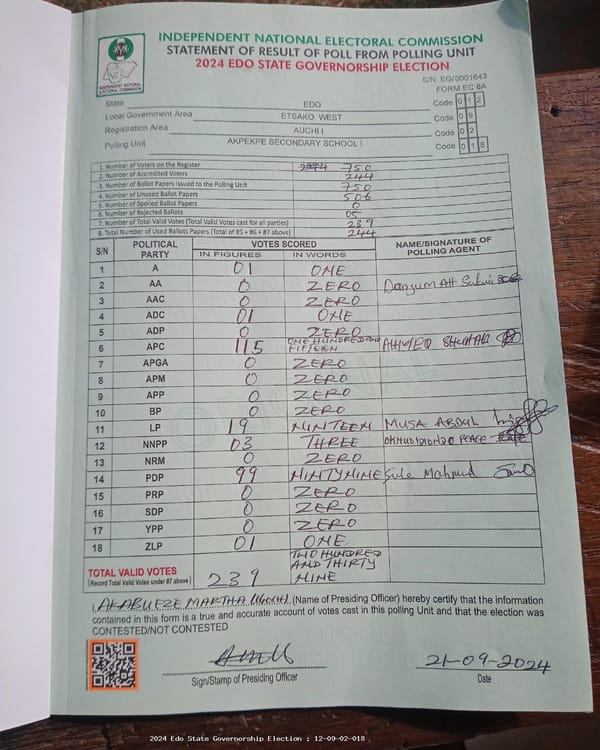 INDEPENDENT NATIONAL ELECTORAL COMMISSION
STATEMENT OF RESULT OF POLL FROM POLLING UNIT
2024 EDO STATE GOVERNORSHIP ELECTION
INEC
INDEPENDENT NATIONAL ELECTORAL COMMISSION
S/N: EG/0001643
FORM EC 8A
State EDO Code 0 1 2
Local Government Area ETSAKO WEST Code 0 9
Registration Area AUCHI I Code 0 2
Polling Unit AKPEKPE SECONDARY SCHOOL I Code 0 1 8
1. Number of Voters on the Register 750
2. Number of Accredited Voters 244
3. Number of Ballot Papers Issued to the Polling Unit 750
4. Number of Unused Ballot Papers 506
5. Number of Spoiled Ballot Papers 0
6. Number of Rejected Ballots 05
7. Number of Total Valid Votes (Total Valid Votes cast for all parties) 239
8. Total Number of Used Ballots Papers (Total of #5 + #6 + #7 above) 244
S/N POLITICAL PARTY VOTES SCORED NAME/SIGNATURE OF POLLING AGENT
IN FIGURES IN WORDS
1 A 01 ONE
2 AA 0 ZERO
3 AAC 0 ZERO
4 ADC 01 ONE
5 ADP 0 ZERO
6 APC 115 ONE HUNDRED AND FIFTEEN AHMED
7 APGA 0 ZERO
8 APM 0 ZERO
9 APP 0 ZERO
10 BP 0 ZERO
11 LP 19 NINTEEN MUSA ABDUL
12 NNPP 03 THREE PEACE
13 NRM 0 ZERO
14 PDP 99 NINTYNINE Sule Mahmud
15 PRP 0 ZERO
16 SDP 0 ZERO
17 YPP 0 ZERO
18 ZLP 01 ONE
TOTAL VALID VOTES
(Record Total Valid Votes under #7 above) 239 TWO HUNDRED AND THIRTY NINE
I, AKABUEZE MARTHA (Name of Presiding Officer) hereby certify that the information
contained in this form is a true and accurate account of votes cast in this polling Unit and that the election was
CONTESTED/NOT CONTESTED
21-09-2024
Sign/Stamp of Presiding Officer Date
2024 Edo State Governorship Election : 12-09-02-018